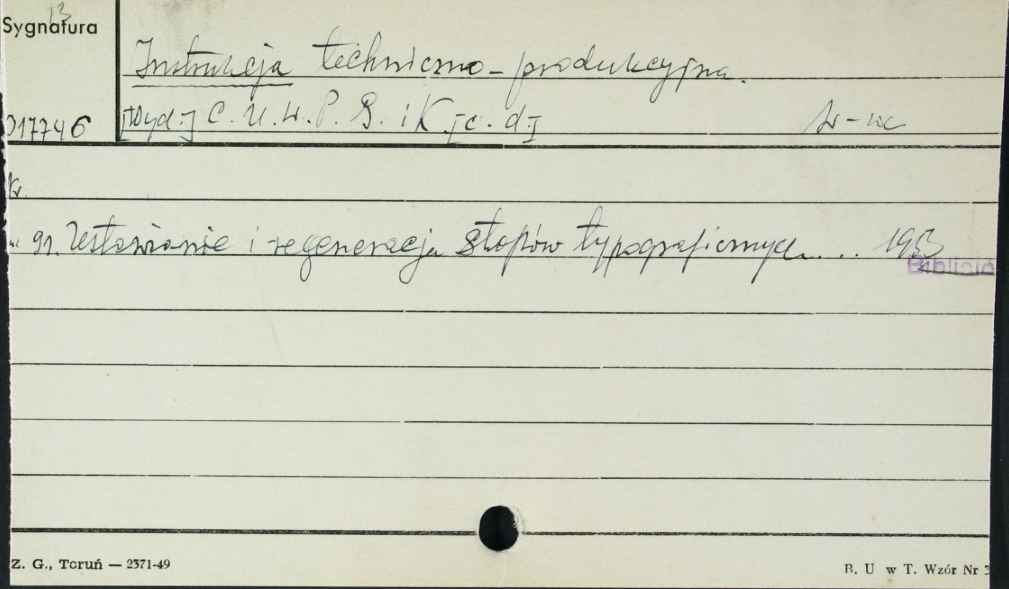 13
Sygnatura
Instrukcja techniczno-produkcyjna.
017746
[Wyd.] C.U.W.P.G. i K. [c.d.]
W-wa
nr 91. Ustawianie i regeneracja stopów typograficznych.... 1953
Bibliote
Z. G., Toruń — 2371-49
B. U w T. Wzór Nr 3